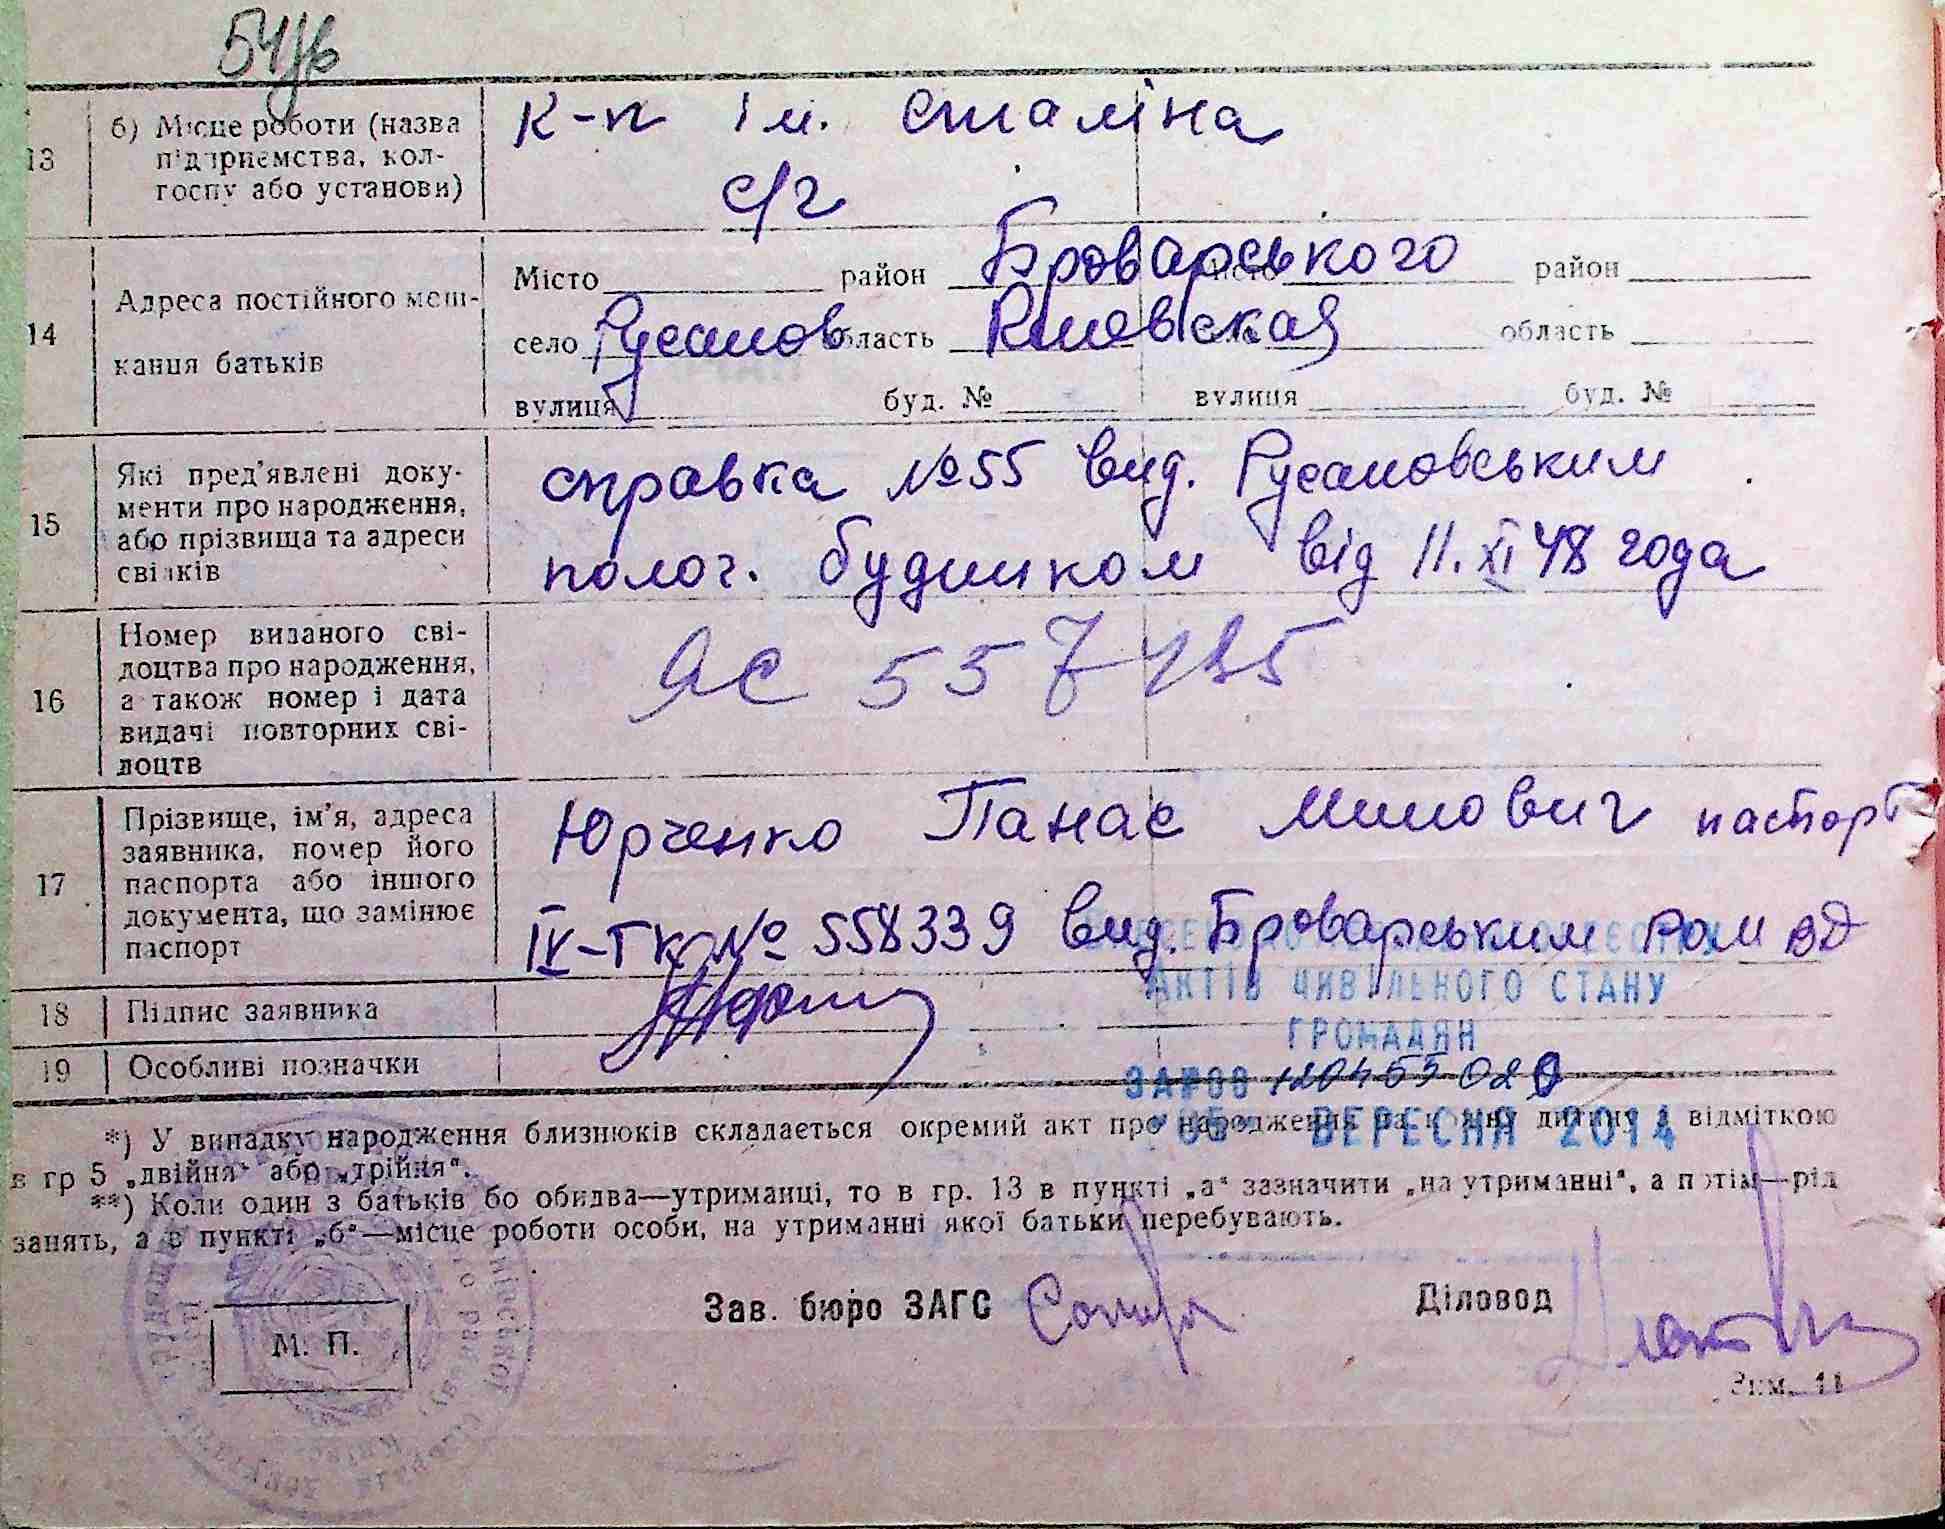 54
13 б) Місце роботи (назва підприємства, колгоспу або установи) К-п ім. сталіна
с/г
14 Адреса постійного мешкання батьків
Місто район Броварського район
село Русанов область Киевская область
вулиця буд. № вулиця буд. №
15 Які пред'явлені документи про народження, або прізвища та адреси свідків
справка №55 вид. Русановським
полог. будинком від 11.XI 48 года
16 Номер виданого свідоцтва про народження, а також номер і дата видачі повторних свідоцтв
ЯС 557495
17 Прізвище, ім'я, адреса заявника, номер його паспорта або іншого документа, що замінює паспорт
Юрченко Панас Минович паспорт
IV-ТК №558339 вид. Броварським РОМ ВД
АКТІВ ЦИВІЛЬНОГО СТАНУ
18 Підпис заявника
ГРОМАДЯН
19 Особливі позначки
ЗА №00120455029
"05" ВЕРЕСНЯ 2014
*) У випадку народження близнюків складається окремий акт про народження на кожну дитину з відміткою
в гр 5 „двійня" або „трійня".
**) Коли один з батьків бо обидва—утриманці, то в гр. 13 в пункті „а" зазначити „на утриманні", а потім—рід
занять, а в пункті „б"—місце роботи особи, на утриманні якої батьки перебувають.
Зав. бюро ЗАГС Діловод
М. П.